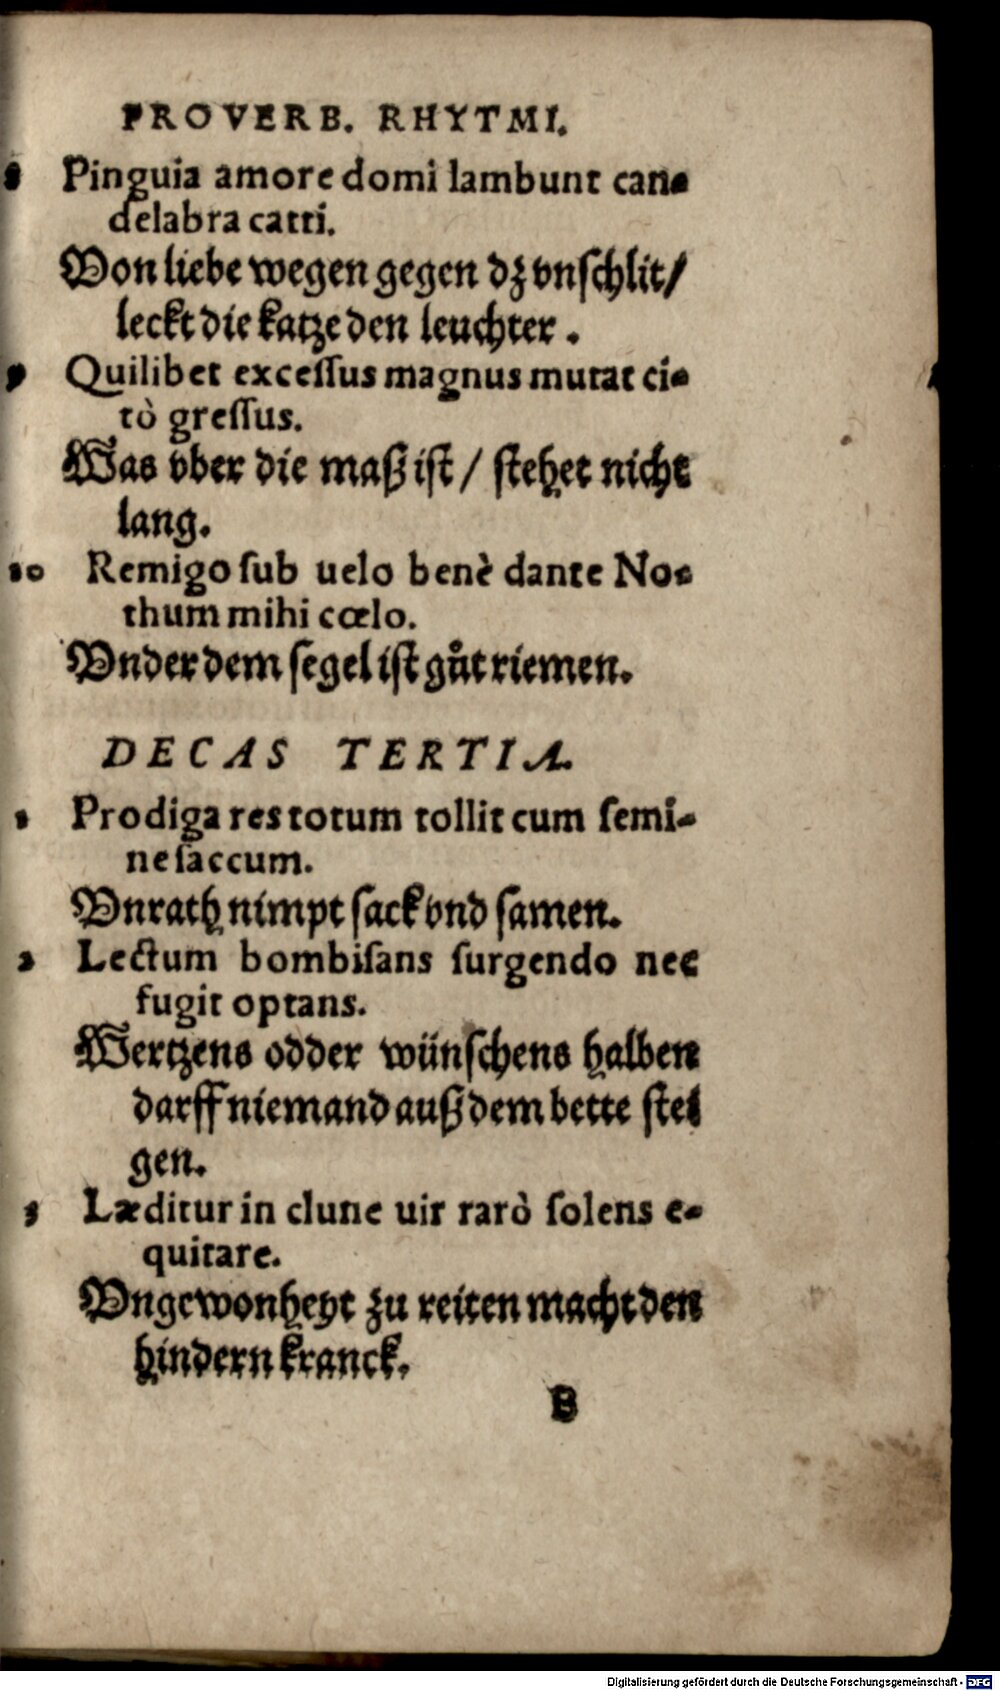 PROVERB. RHYTMI.
8 Pinguia amore domi lambunt can-
delabra catti.
Von liebe wegen gegen dz vnschlit/
leckt die katze den leuchter.
9 Quilibet excessus magnus mutat ci-
tò gressus.
Was vber die maß ist / stehet nicht
lang.
10 Remigo sub uelo benè dante No-
thum mihi cœlo.
Vnder dem segel ist gůt riemen.
DECAS TERTIA.
1 Prodiga res totum tollit cum semi-
ne saccum.
Vnrath nimpt sack vnd samen.
2 Lectum bombisans surgendo nec
fugit optans.
Wertzens odder wünschens halben
darff niemand auß dem bette stei
gen.
3 Læditur in clune uir rarò solens e-
quitare.
Vngewonheyt zu reiten macht den
hindern kranck.
B
Digitalisierung gefördert durch die Deutsche Forschungsgemeinschaft - DFG